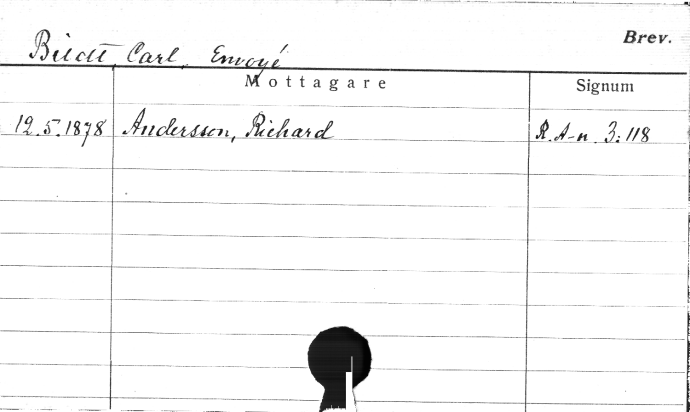 Brev.
Bildt, Carl, Envoyé
Mottagare Signum
12.5.1878 Andersson, Richard R.A-n. 3:118